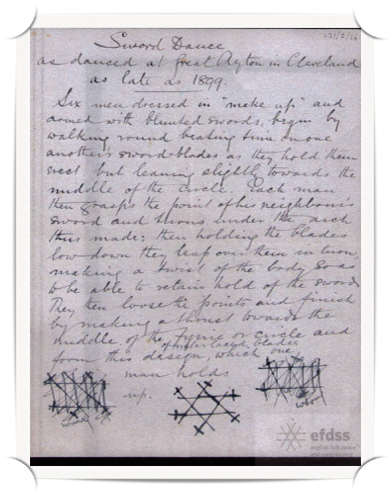 Sword Dance
as danced at Great Ayton in Cleveland
as late as 1899
Six men dressed in "make up" and
armed with blunted swords, begin by
walking round beating time on one
anothers sword blades as they hold them
erect but leaning slightly towards the
middle of the circle. Each man
then grasps the point of his neighbour's
sword and throws under the arch
thus made; then holding the blades
low down they leap over them in turn,
making a twist of the body so as
to be able to retain hold of the sword
They then loose the points and finish
by making a thrust towards the
middle of the ring or circle and
of interlaced blades
form this design, which one
man holds
up.
efdss
english folk dance
and song society